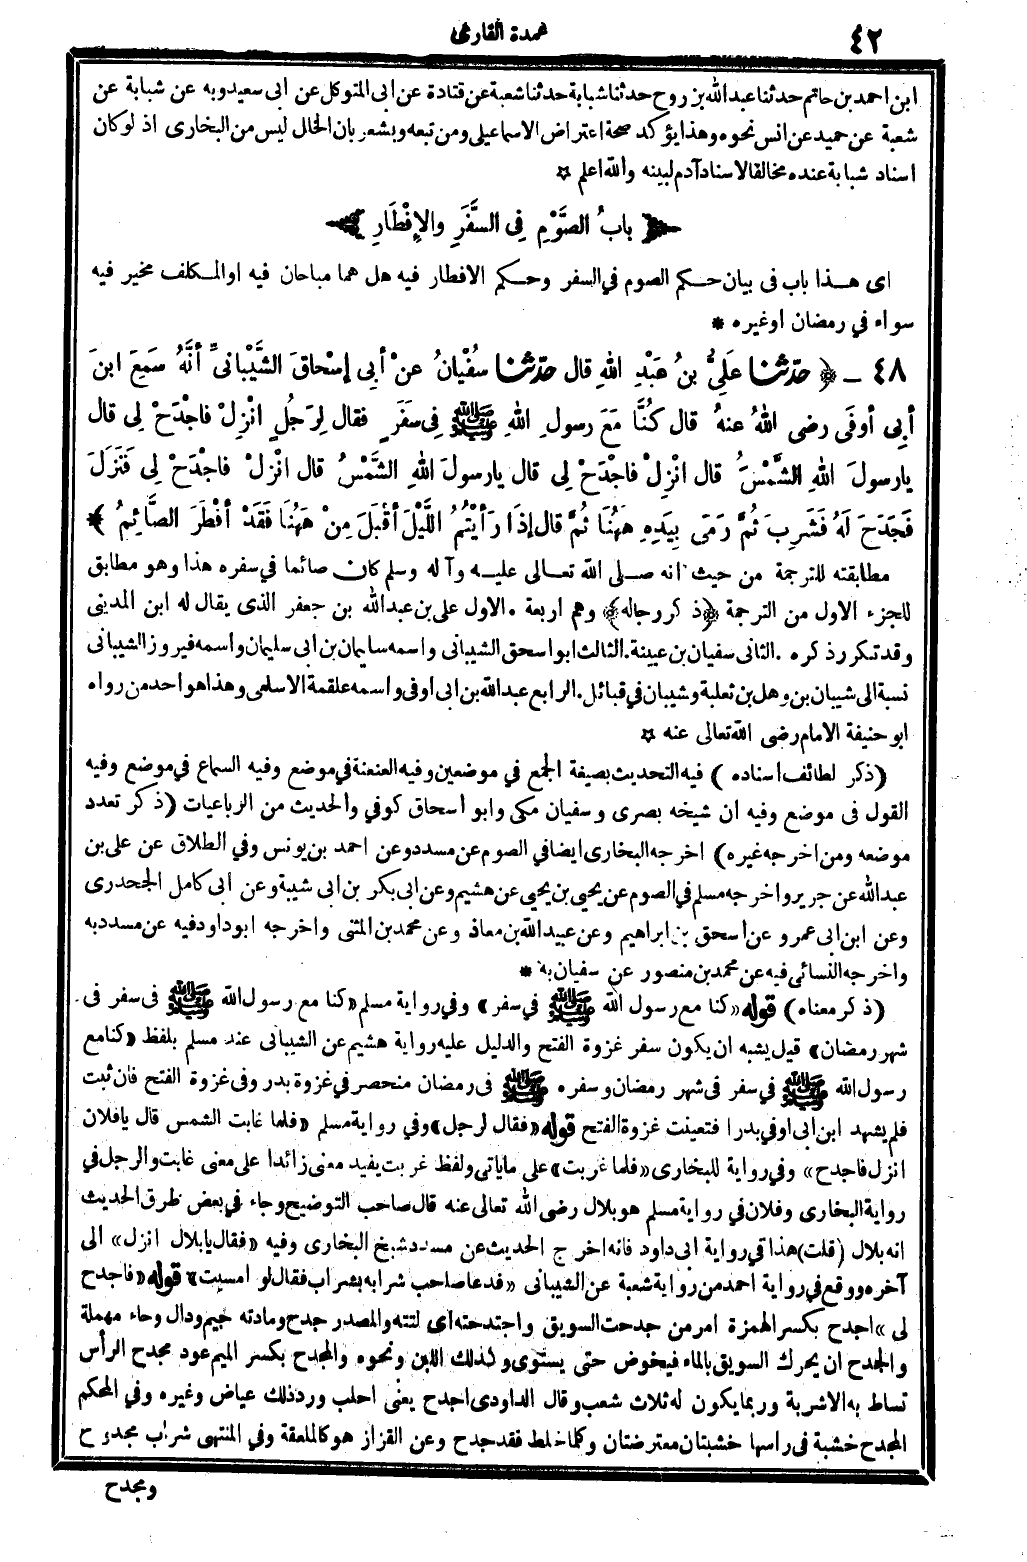 ٤٢
عمدة القارئ
ابن احمد بن حاتم حدثنا عبدالله بن روح حدثنا شبابة حدثنا شعبة عن قتادة عن ابى المتوكل عن ابى سعيد وبه عن شبابة عن
شعبة عن حميد عن انس نحوه وهذا يؤكد صحة اعتراض الاسماعيلى ومن تبعه ويشعر بان الخال ليس من البخارى اذ لو كان
اسناد شبابة عنده مخالفا لاسناد آدم لبينه والله اعلم ✡
باب الصَّوْمِ فِى السَّفَرِ والإِفْطَارِ
اى هـذا باب فى بيان حـكم الصوم في السفر وحـكم الافطار فيه هل هما مباحان فيه او المكلف مخير فيه
سواء في رمضان او غيره *
٤٨ ـ ﴿ حدّثنا عَلِىُّ بنُ عَبْدِ اللهِ قال حدّثنا سُفْيانُ عنْ أبى إسْحاقَ الشَّيْبانىِّ أنَّهُ سَمِعَ ابنَ
أبِى أوفَى رضى اللهُ عنهُ قال كُنَّا مَعَ رسولِ اللهِ ﷺ فِى سَفَرٍ فقال لِرَجُلٍ انْزِلْ فاجْدَحْ لِى قال
يارسولَ اللهِ الشَّمْسُ قال انْزِلْ فاجْدَحْ لِى قال يارسولَ اللهِ الشَّمْسُ قال انْزِلْ فاجْدَحْ لِى فَنَزَلَ
فَجَدَحَ لَهُ فَشَرِبَ ثُمَّ رَمَى بِيَدِهِ هَهُنَا ثُمَّ قال إذَا رَأيْتُمُ اللَّيْلَ أقْبَلَ مِنْ هَهُنَا فَقَدْ أفْطَرَ الصَّائِمُ ﴾ *
مطابقته للترجمة من حيث انه صـلى الله تعـالى عليـه وآله وسلم كان صائما في سفره هذا وهو مطابق
للجزء الاول من الترجمة ﴿ذكر رجاله﴾ وهم اربعة . الاول على بن عبدالله بن جعفر الذى يقال له ابن المدينى
وقد تكرر ذكره . الثانى سفيان بن عيينة . الثالث ابو اسحق الشيبانى واسمه سليمان بن ابى سليمان واسمه فيروز الشيبانى
نسبة الى شيبان بن وهل بن ثعلبة وشيبان في قبائل . الرابع عبدالله بن ابى اوفى واسمه علقمة الاسلمى وهذا هو احد من رواه
ابو حنيفة الامام رضى الله تعالى عنه ✡
(ذكر لطائف اسناده) فيه التحديث بصيغة الجمع في موضعين وفيه العنعنة في موضع وفيه السماع في موضع وفيه
القول فى موضع وفيه ان شيخه بصرى وسفيان مكى وابو أسحاق كوفي والحديث من الرباعيات (ذكر تعدد
موضعه ومن اخرجه غيره) اخرجه البخارى ايضا في الصوم عن مسدد وعن احمد بن يونس وفي الطلاق عن على بن
عبدالله عن جرير واخرجه مسلم في الصوم عن يحيى بن يحيى عن هشيم وعن ابى بكر بن ابى شيبة وعن ابى كامل الجحدرى
وعن ابن ابى عمرو عن أسحق بن ابراهيم وعن عبيد الله بن معاذ وعن محمد بن المثنى واخرجه ابو داود فيه عن مسدد به
واخرجه النسائى فيه عن محمد بن منصور عن سفيان به *
(ذكر معناه) قوله «كنا مع رسول الله ﷺ في سفر» وفي رواية مسلم «كنا مع رسول الله ﷺ فى سفر فى
شهر رمضان» قيل يشبه ان يكون سفر غزوة الفتح والدليل عليه رواية هشيم عن الشيبانى عند مسلم بلفظ «كنا مع
رسول الله ﷺ في سفر فى شهر رمضان وسفره ﷺ فى رمضان منحصر في غزوة بدر وفى غزوة الفتح فان ثبت
فلم يشهد ابن ابى اوفي بدرا فتعينت غزوة الفتح قوله «فقال لرجل» وفي رواية مسلم «فلما غابت الشمس قال يا فلان
انزل فاجدح» وفي رواية للبخارى «فلما غربت» على ما ياتى ولفظ غربت يفيد معنى زائدا على معنى غابت والرجل في
رواية البخارى وفلان في رواية مسلم هو بلال رضى الله تعالى عنه قال صاحب التوضيح وجاء في بعض طرق الحديث
انه بلال (قلت) هذا في رواية ابى داود فانه اخرج الحديث عن مسدد شيخ البخارى وفيه «فقال يا بلال انزل» الى
آخره ووقع في رواية احمد من رواية شعبة عن الشيبانى «فدعا صاحب شرابه بشراب فقال لو امسيت» قوله «فاجدح
لى» اجدح بكسر الهمزة امر من جدحت السويق واجتدحته اى لتته والمصدر جدح ومادته جيم ودال وحاء مهملة
والجدح ان يحرك السويق بالماء فيخوض حتى يستوى وكذلك اللبن ونحوه والمجدح بكسر الميم عود مجدح الرأس
تساط به الاشربة وربما يكون له ثلاث شعب وقال الداودى اجدح يعنى احلب ورد ذلك عياض وغيره وفي المحكم
المجدح خشبة فى راسها خشبتان معترضتان وكلما خلط فقد جدح وعن القزاز هو كالملعقة وفي المنتهى شراب مجدوح
ومجدح